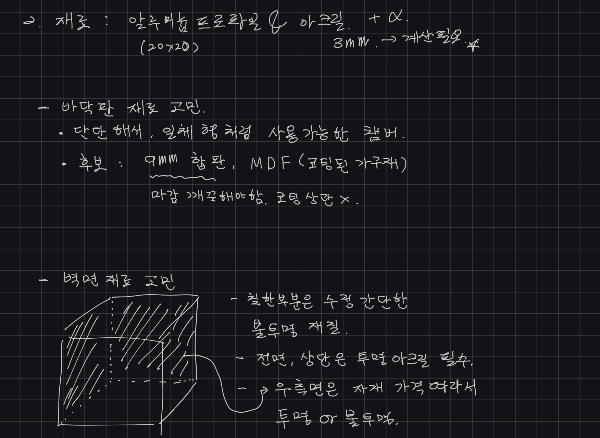 2. 재료 : 알루미늄 프로파일 & 아크릴. + α.
(20×20)
3mm. → 계산필요 ★
- 바닥판 재료 고민.
• 단단해서, 일체형처럼 사용가능한 챔버.
• 후보 : 9mm 합판, MDF (코팅된 가구재)
마감 깨끗해야함, 코팅상판 x.
- 벽면 재료 고민
- 칠한부분은 수정 간단한
불투명 재질.
- 전면, 상단은 투명아크릴 필수.
- → 우측면은 자재 가격 따라서
투명 or 불투명.